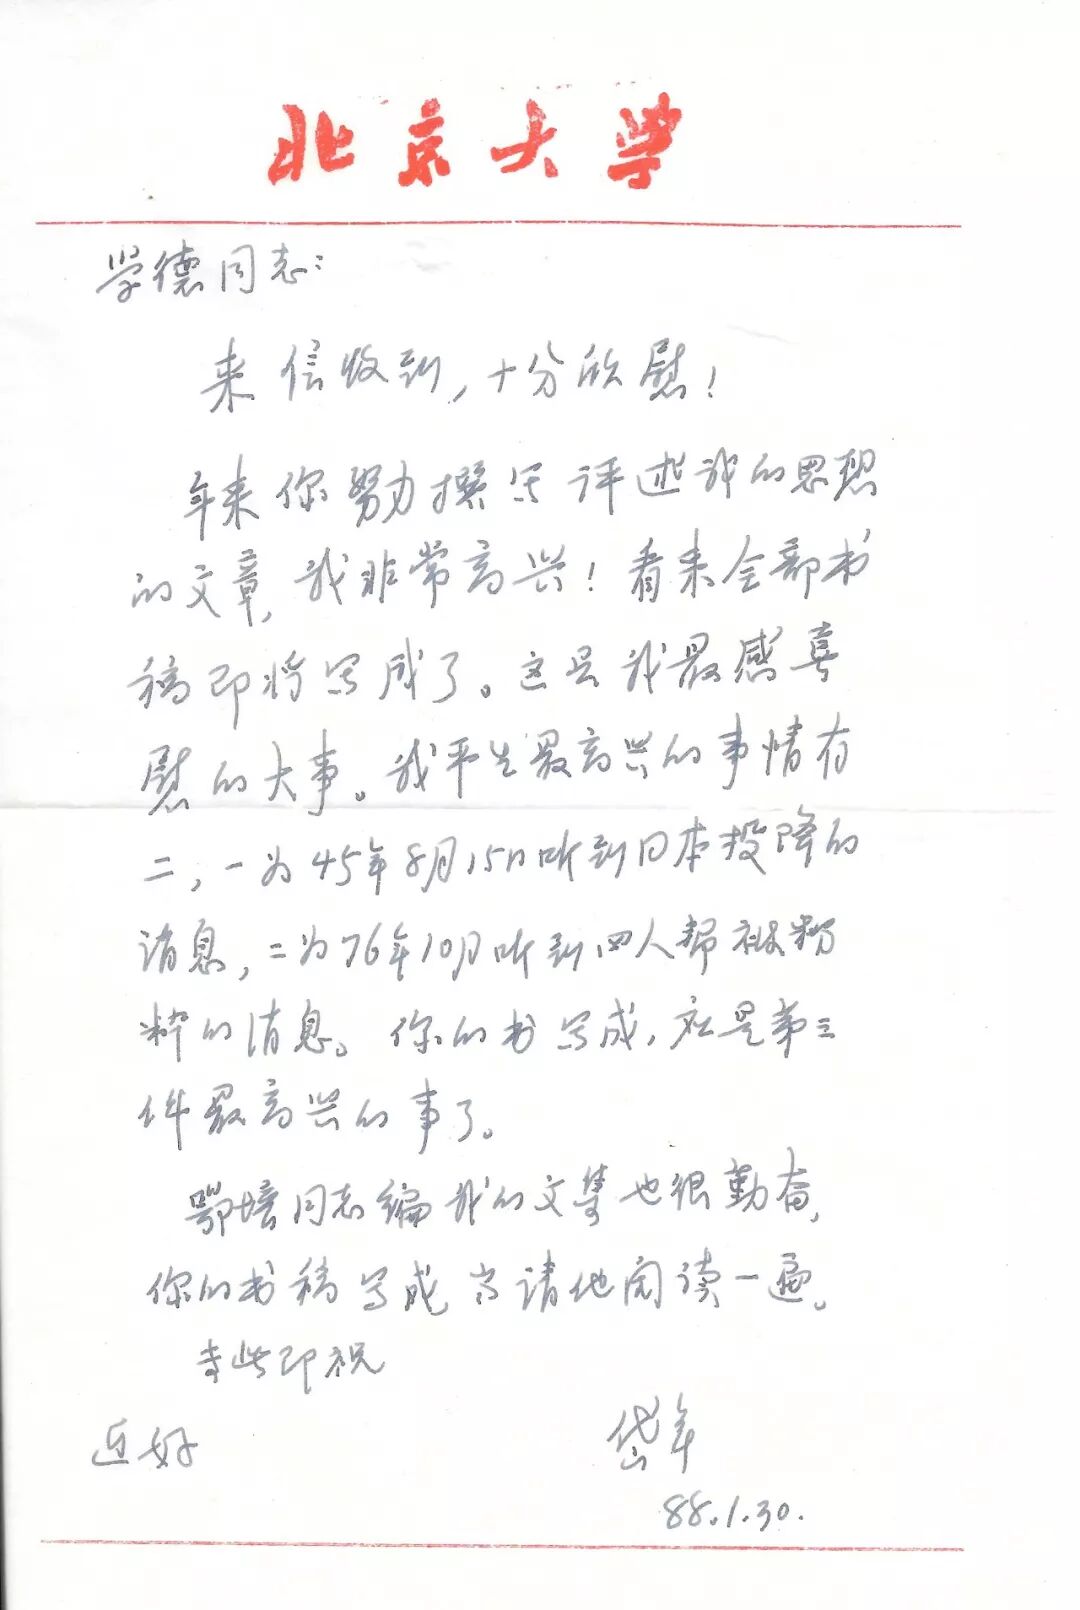 北京大学
学德同志：
来信收到，十分欣慰！
年来你努力撰写评述我的思想
的文章，我非常高兴！看来全部书
稿即将写成了。这是我最感喜
慰的大事。我平生最高兴的事情有
二，一为45年8月15日听到日本投降的
消息，二为76年10月听到四人帮被粉
粹的消息。你的书写成，应是第三
件最高兴的事了。
鄂培同志编我的文集也很勤奋，
你的书稿写成，请他阅读一遍。
专此即祝
近好
岱年
88.1.30.